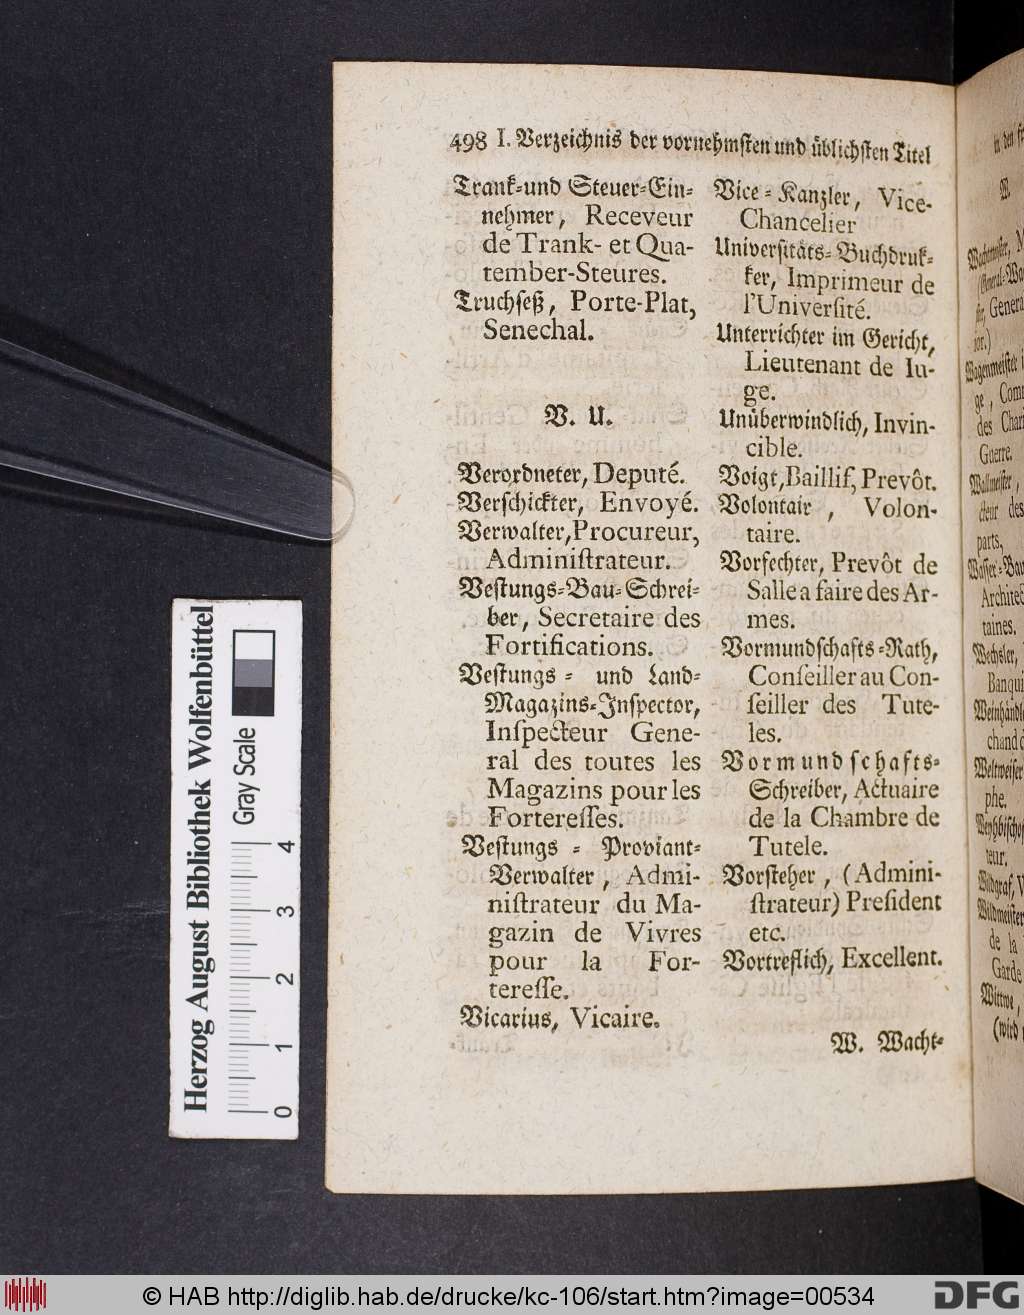 498 I. Verzeichnis der vornehmsten und üblichsten Titel
Trank-und Steuer-Ein-
nehmer, Receveur
de Trank- et Qua-
tember-Steures.
Truchseß, Porte-Plat,
Senechal.
V. U.
Verordneter, Deputé.
Verschickter, Envoyé.
Verwalter, Procureur,
Adminiſtrateur.
Vestungs-Bau-Schrei-
ber, Secretaire des
Fortifications.
Vestungs- und Land-
Magazins-Inspector,
Inſpecteur Gene-
ral des toutes les
Magazins pour les
Fortereſſes.
Vestungs-Proviant-
Verwalter, Admi-
niſtrateur du Ma-
gazin de Vivres
pour la For-
tereſſe.
Vicarius, Vicaire.
Vice-Kanzler, Vice-
Chancelier
Universitäts-Buchdruk-
ker, Imprimeur de
l'Univerſité.
Unterrichter im Gericht,
Lieutenant de Iu-
ge.
Unüberwindlich, Invin-
cible.
Voigt, Baillif, Prevôt.
Volontair, Volon-
taire.
Vorfechter, Prevôt de
Salle a faire des Ar-
mes.
Vormundschafts-Rath,
Conſeiller au Con-
ſeiller des Tute-
les.
Vormundschafts-
Schreiber, Actuaire
de la Chambre de
Tutele.
Vorsteher, (Admini-
ſtrateur) Preſident
etc.
Vortreflich, Excellent.
W. Wacht-
in den
W.
Wachtmeister, M
(General-Wa
General
ior.)
Wagenmeister
ge, Com
des Char
Guerre.
Wallmeister,
cteur des
parts,
Wasser-Bau
Architec
taines.
Wechsler,
Banqui
Weinhändle
chand d
Weltweiser
phe.
Weyhbischof
teur.
Wildgraf, V
Wildmeister
de la
Garde
Wittwe,
(wird
Herzog August Bibliothek Wolfenbüttel
Gray Scale
0 1 2 3 4
© HAB http://diglib.hab.de/drucke/kc-106/start.htm?image=00534
DFG